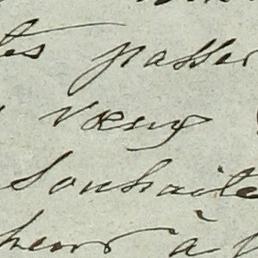 tes passer
vœux
souhaite
heur à